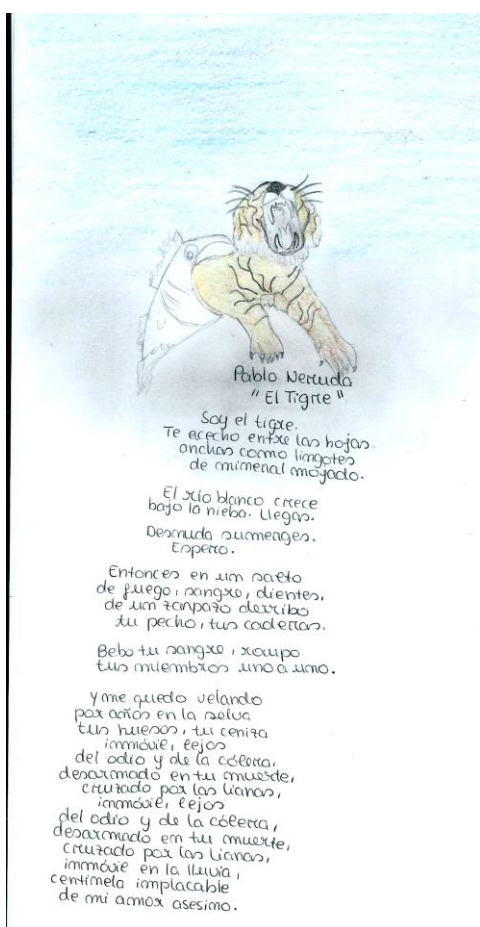 Pablo Neruda
"El Tigre"
Soy el tigre.
Te acecho entre las hojas
anchas como lingotes
de mimenal mojado.
El río blanco crece
bajo la niebla. Llegas.
Desnuda sumerges.
Espero.
Entonces en un salto
de fuego, sangre, dientes,
de un zanpazo derribo
tu pecho, tus caderas.
Bebo tu sangre, rompo
tus miembros uno a uno.
y me quedo velando
por años en la selva
tus huesos, tu ceniza
inmóvil, lejos
del odio y de la cólera,
desarmado en tu muerte,
cruzado por las lianas,
inmóvil, lejos
del odio y de la cólera,
desarmado en tu muerte,
cruzado por las lianas,
inmóvil en la lluvia,
centinela implacable
de mi amor asesino.